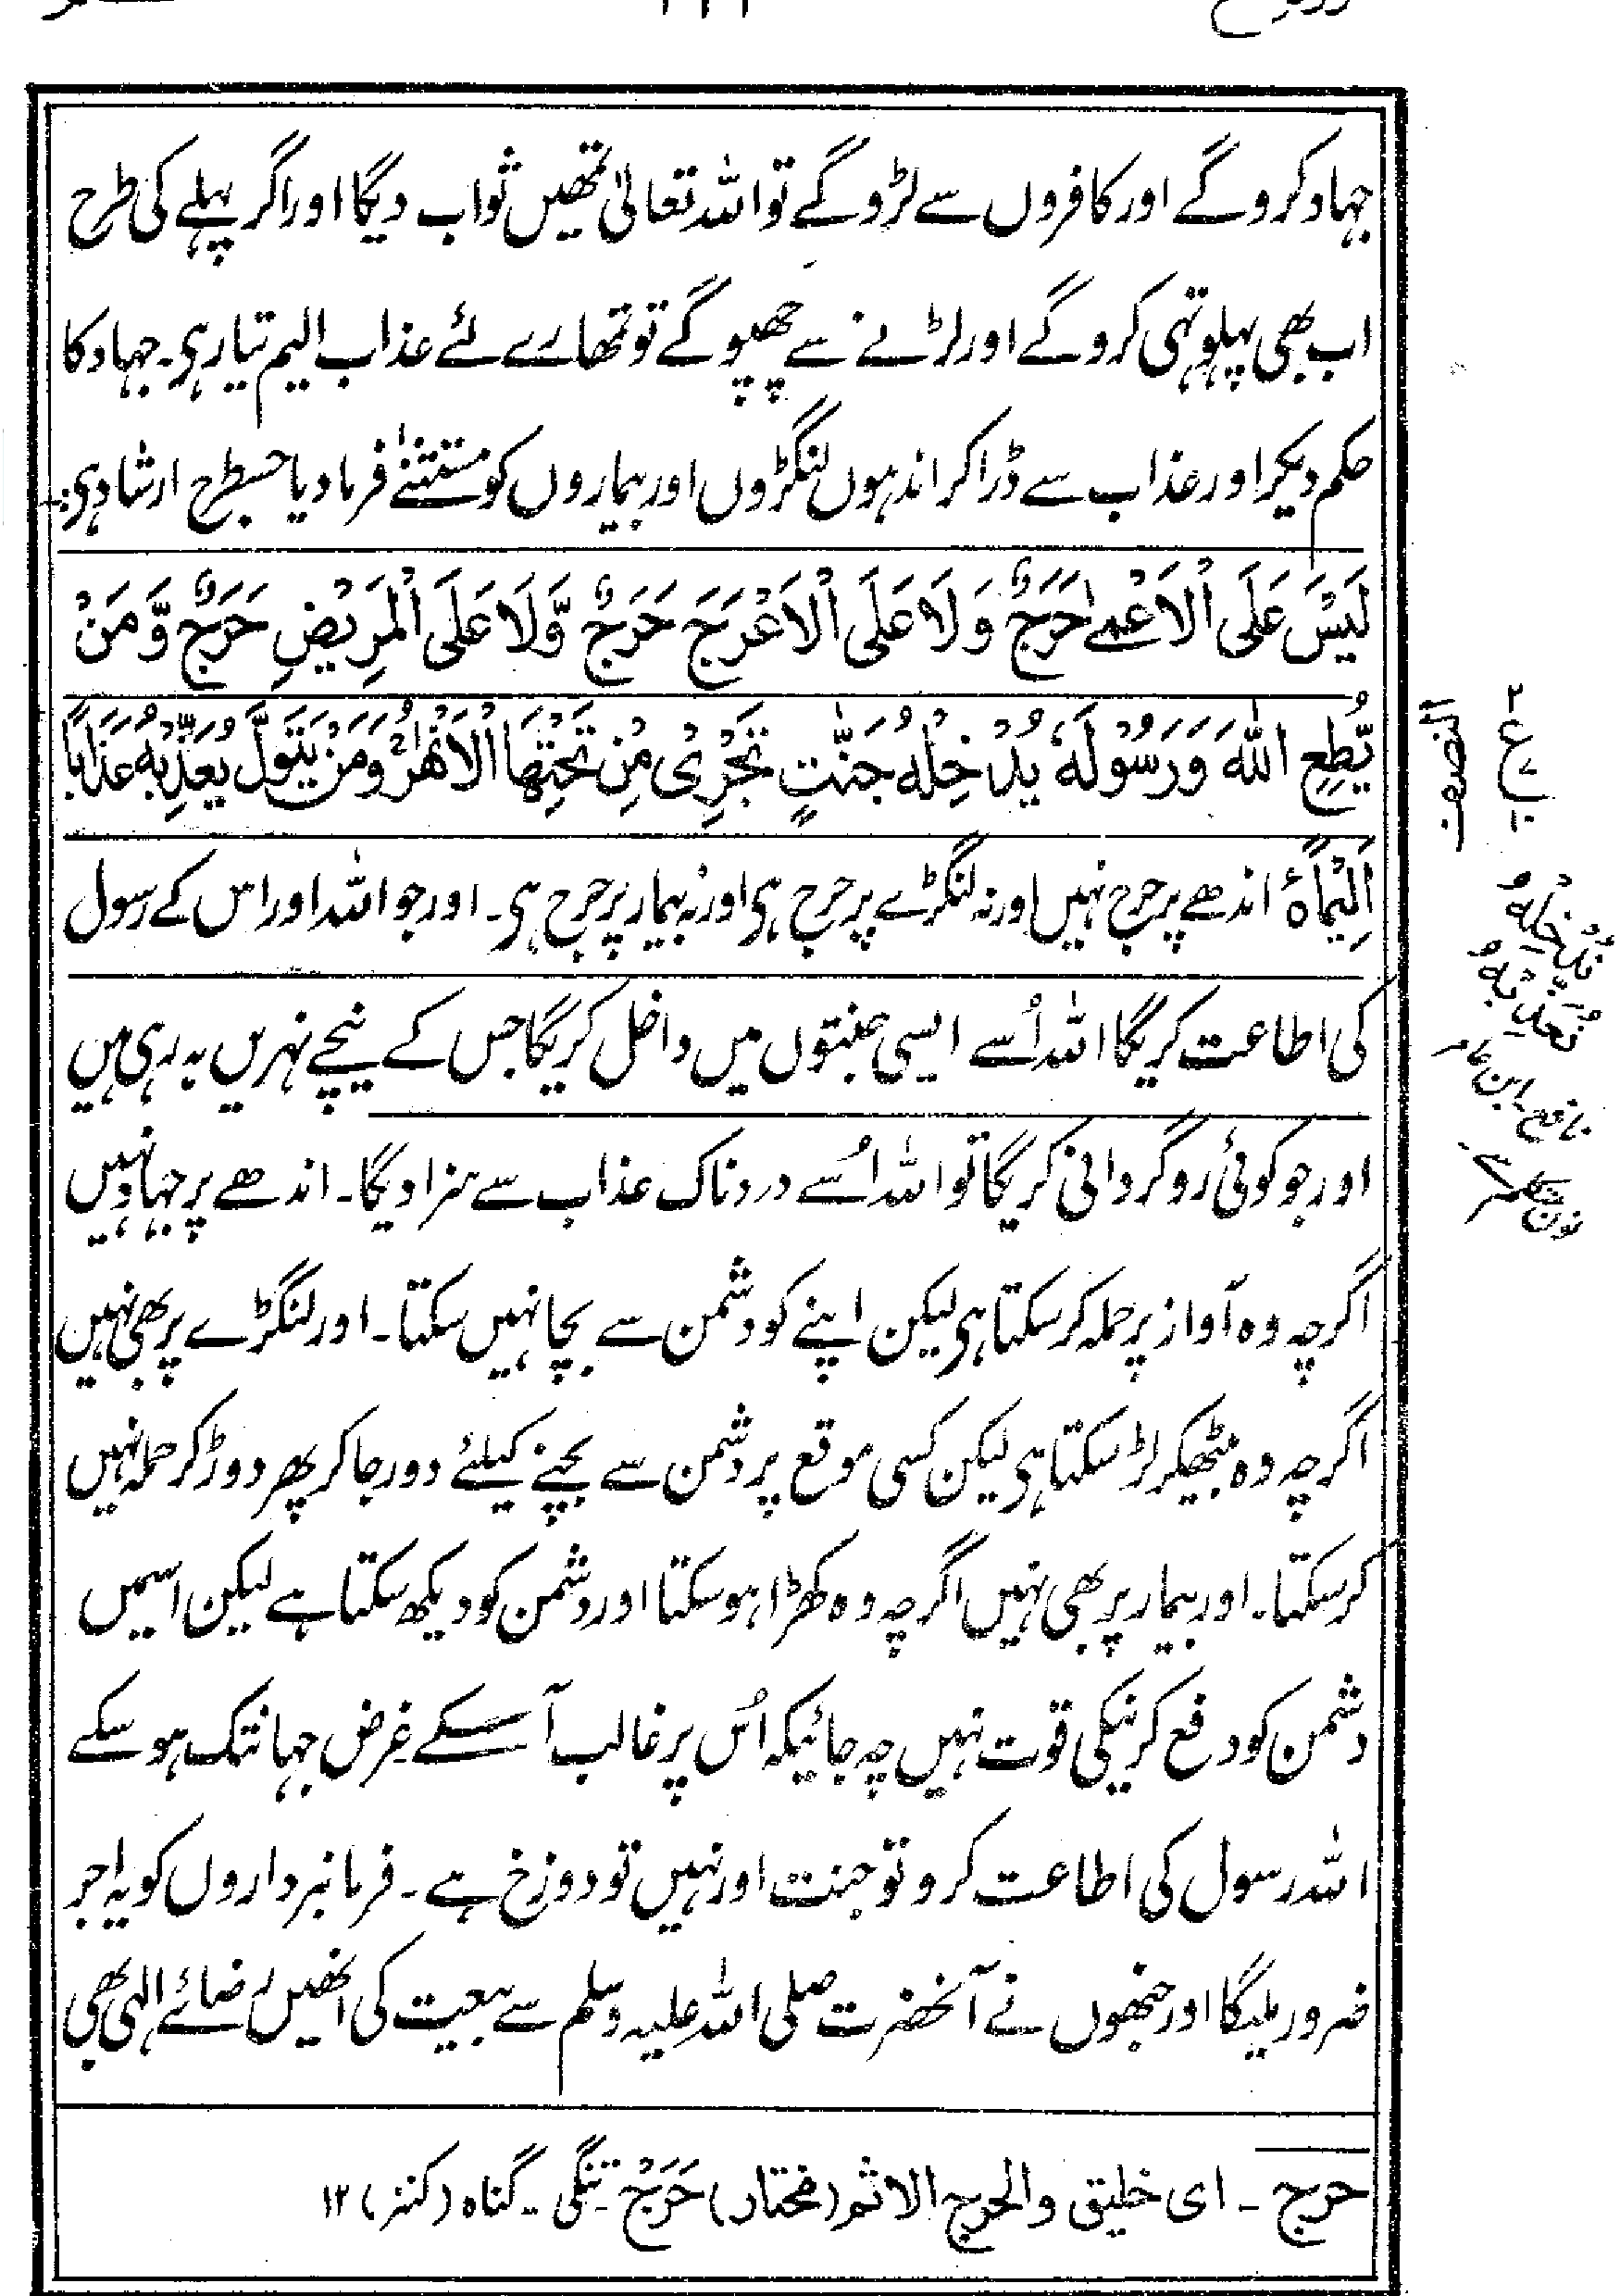 جہاد کروگے اور کافروں سے لڑوگے تو اللہ تعالیٰ تمھیں ثواب دیگا اور اگر پہلے کی طرح
اب بھی پہلو تہی کروگے اور لڑنے سے چھپوگے تو تمھارے لئے عذاب الیم تیار ہی۔ جہاد کا
حکم دیکر اور عذاب سے ڈرا کر اندہوں لنگڑوں اور بیماروں کو مستثنےٰ فرمادیا جسطرح ارشاد ہی:
لَیْسَ عَلَی الْاَعْمٰے حَرَجٌ وَ لَا عَلَی الْاَعْرَجِ حَرَجٌ وَّلَا عَلَی الْمَرِیْضِ حَرَجٌ وَّ مَنْ
یُّطِعِ اللّٰہَ وَ رَسُوْلَہٗ یُدْخِلْہُ جَنّٰتٍ تَجْرِیْ مِنْ تَحْتِهَا الْاَنْھٰرُ وَ مَنْ یَّتَوَلَّ یُعَذِّبْہُ عَذَابًا
اَلِیْمًا ۀ اندھے پر حرج نہیں اور نہ لنگڑے پر حرج ہی اور نہ بیمار پر حرج ہی۔ اور جو اللہ اور اس کے رسول
کی اطاعت کریگا اللہ اُسے ایسی جنتوں میں داخل کریگا جس کے نیچے نہریں بہ رہی ہیں
اور جو کوئی روگردانی کریگا تو اللہ اُسے دردناک عذاب سے سزا دیگا۔ اندھے پر جہاد نہیں
اگرچہ وہ آواز پر حملہ کرسکتا ہی لیکن اپنے کو دشمن سے بچا نہیں سکتا۔ اور لنگڑے پر بھی نہیں
اگرچہ وہ بٹھیکر لڑسکتا ہی لیکن کسی موقع پر دشمن سے بچنے کیلئے دور جا کر پھر دوڑ کر حملہ نہیں
کرسکتا۔ اور بیمار پر بھی نہیں اگرچہ وہ کھڑا ہوسکتا اور دشمن کو دیکھ سکتا ہے لیکن اسمیں
دشمن کو دفع کرنیکی قوت نہیں چہ جائیکہ اُس پر غالب آسکے غرض جہانتک ہوسکے
اللہ رسول کی اطاعت کرو تو جنت اور نہیں تو دوزخ ہے۔ فرمانبرداروں کو یہ اجر
ضرور ملیگا اور جنھوں نے آنحضرت صلی اللہ علیہ وسلم سے بیعت کی انھیں رضائے الٰہی بھی
حرج ۔ ای خلیق والحرج الاثم (مختار) حَرَجْ ۔ تنگی ۔ گناہ (کنز) ۱۲
النصف
۲
ع
۱۰
نُدْخِلْہُ
نُعَذِّبْہُ
نافع ابن عامر